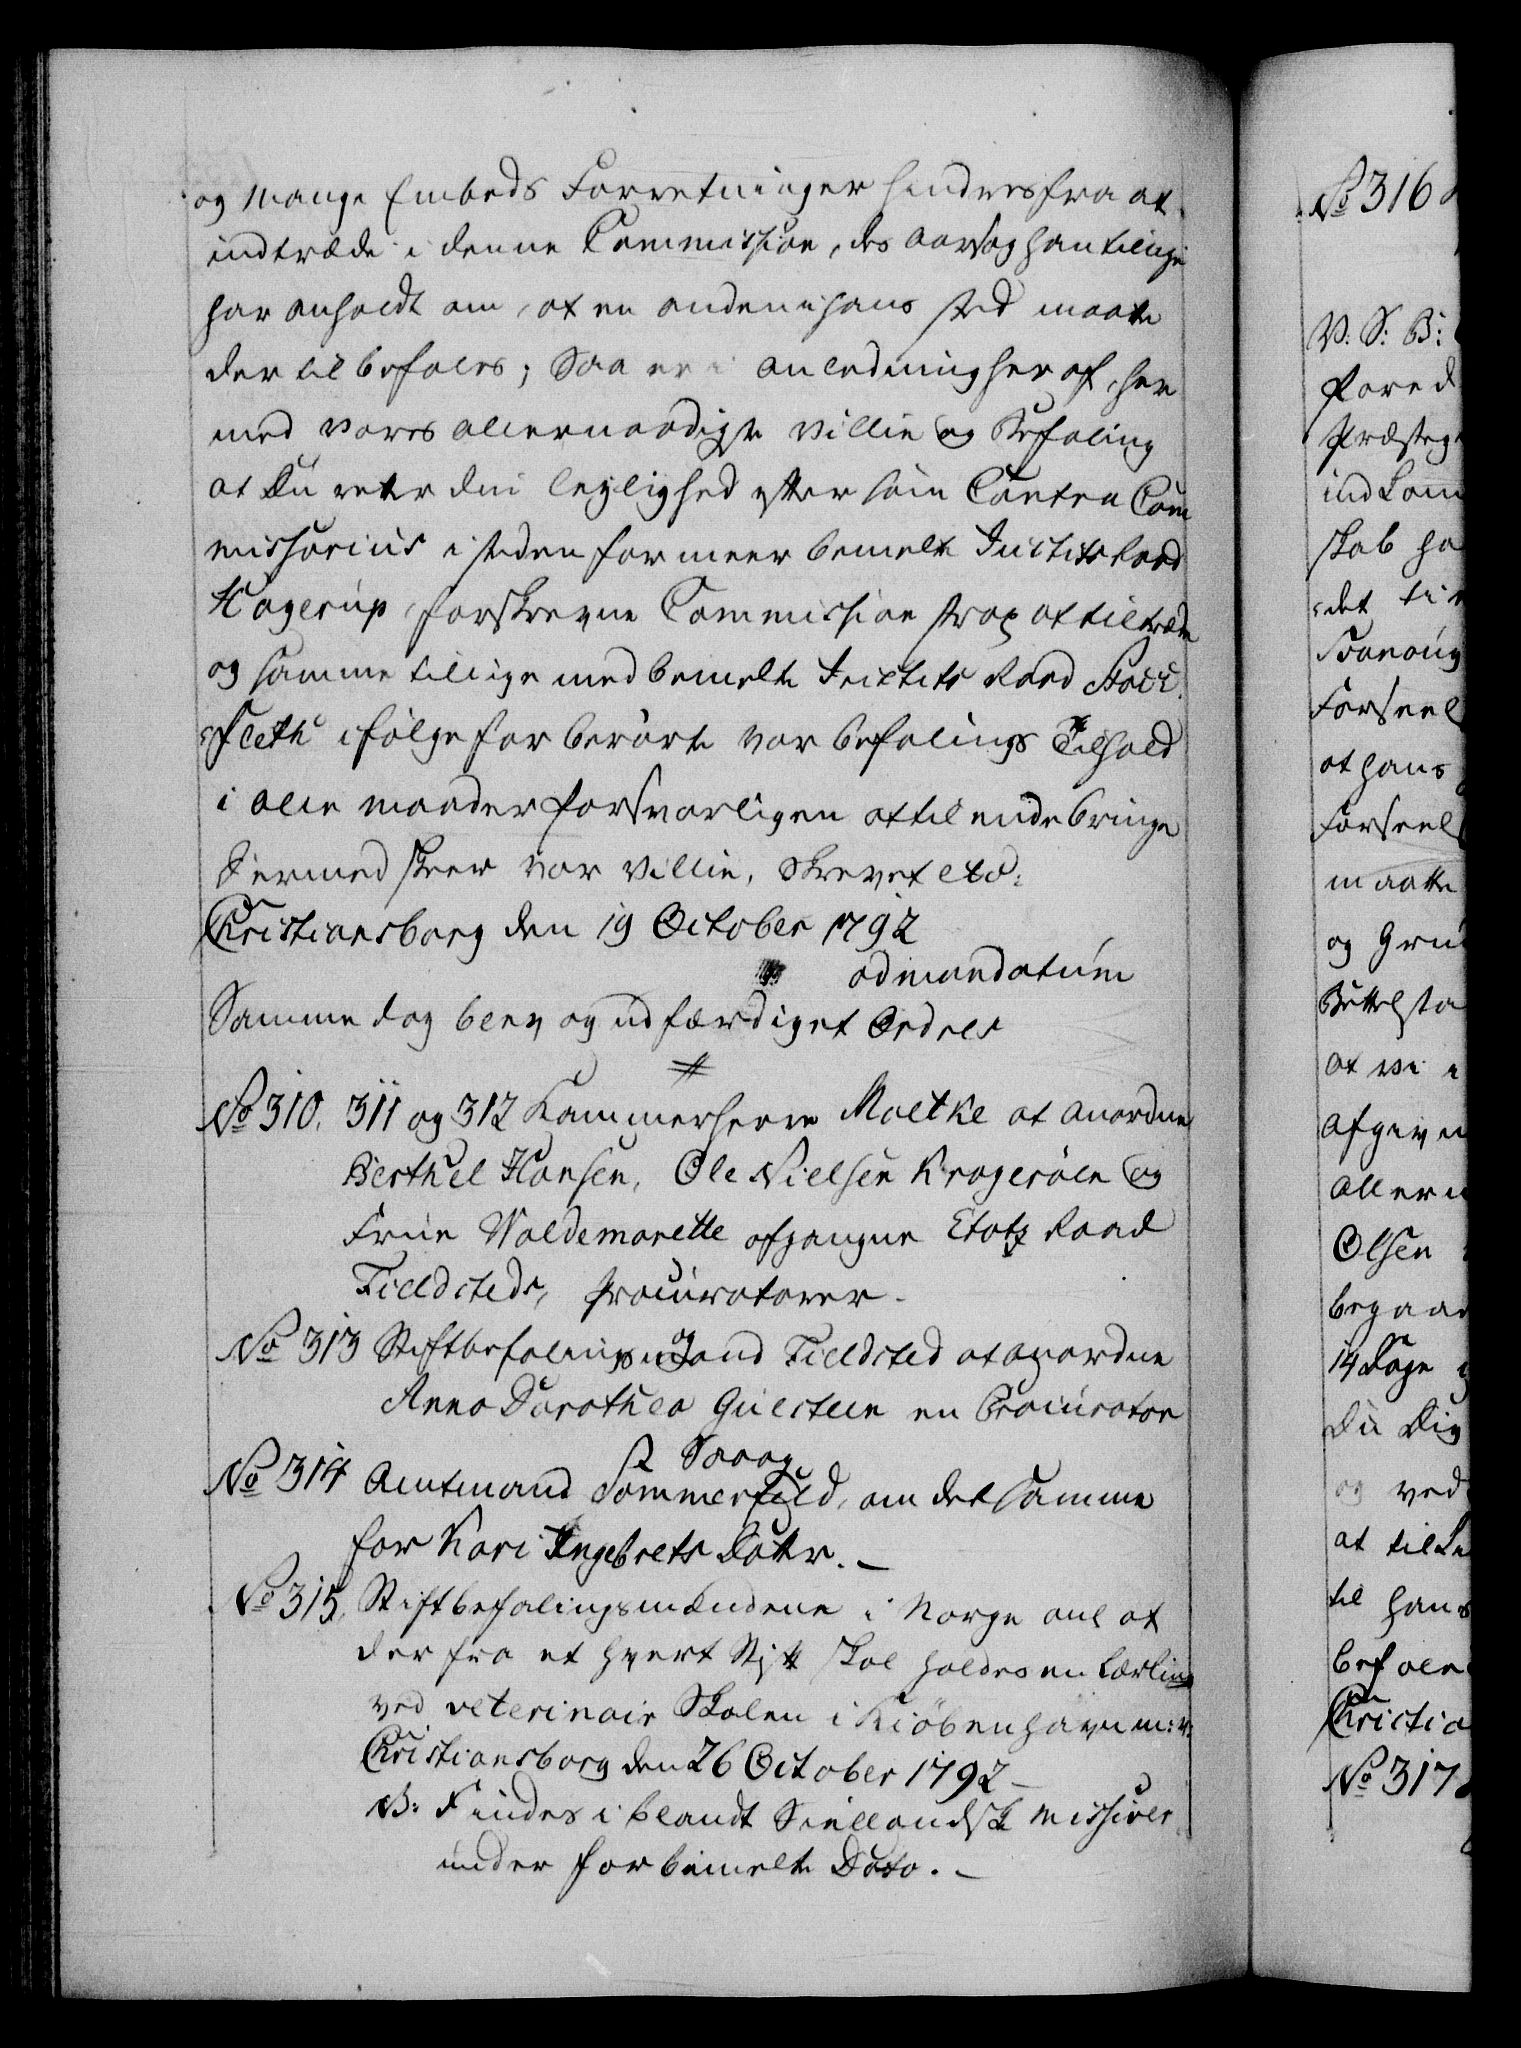 og mange Embeds Forretninger hindres fra at
indtræde i denne Commission, des aarsag han tillige
har anholdt om, at en anden i hans sted maatte
der til befales; Saa er i anledning her af, her
med vores allernaadigste Villie og Befaling
at Du retter din leylighed efter som Contra Com
missarius i steden for meer bemelte Justits Raad
Hagerup, forskrevne Commission strax at tiltræde
og samme tillige med bemelte Justits Raad Stoc¢
Fleth i følge for berørte vor befalings Tilhold
i alle maader forsvarligen at til endebringe
Dermed skeer vor Villie. Skrevet etc:
Christiansborg den 19 October 1792
ad mandatum
Samme dag blev og udfærdiget Ordres
No 310. 311 og 312 Kammerherre Moltke at anordne
Berthel Hansen, Ole Nielsen Kragerøen og
Frue Woldemarette afgangne Etatz Raad
Fieldsteds, procuratorer.
No 313 Stiftbefalingsmand Fieldsted at anordne
Anna Dorothea Gulsteen en Procurator
No 314 Amtmand Sommerfeld, om det samme
for Kari Ingebrets Datter. -
No 315, Stiftbefalingsmændene i Norge anl at
der fra et hvert Stift skal holdes en Lærling
ved veterinair Skolen i Kiøbenhavn m: v:
Christiansborg den 26 October 1792 -
NB: Findes i blandt Siellandsk Missiver
under forbemelte Dato. -
No 316
V: S: B:
Præsteg
ind kom
skab ha
det ti
Forseel
at hans
Forseel
maatte
og Gru
at vi i
afgiven
allern
Olsen
begaae
14 Dage
Du Dig
og ved
at tilke
til hans
befale
Christia
No 317